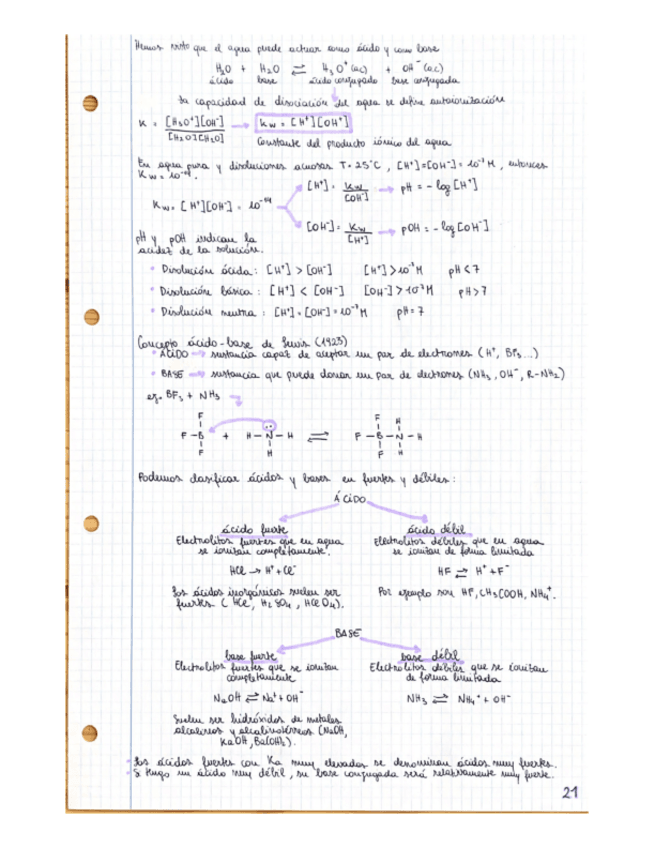 Hemos visto que el agua puede actuar como ácido y como base
H₂O + H₂O ⇌ H₃O⁺(ac) + OH⁻(ac)
ácido base ácido conjugado base conjugada
La capacidad de disociación del agua se define autoionización
K = [H₃O⁺][OH⁻] / [H₂O][H₂O] → Kw = [H⁺][OH⁻]
Constante del producto iónico del agua
En agua pura y disoluciones acuosas T= 25°C, [H⁺]=[OH⁻]= 10⁻⁷ M, entonces
Kw= 10⁻¹⁴.
[H⁺] = Kw / [OH⁻] → pH = - log [H⁺]
Kw= [H⁺][OH⁻] = 10⁻¹⁴
[OH⁻] = Kw / [H⁺] → pOH = - log [OH⁻]
pH y pOH indican la
acidez de la solución.
• Disolución ácida: [H⁺] > [OH⁻] [H⁺] > 10⁻⁷ M pH < 7
• Disolución básica: [H⁺] < [OH⁻] [OH⁻] > 10⁻⁷ M pH > 7
• Disolución neutra: [H⁺] = [OH⁻] = 10⁻⁷ M pH = 7
Concepto ácido-base de Lewis (1923)
• ÁCIDO → sustancia capaz de aceptar un par de electrones (H⁺, BF₃...)
• BASE → sustancia que puede donar un par de electrones (NH₃, OH⁻, R-NH₂)
ej. BF₃ + NH₃
F F H
F - B + H - N - H ⇌ F - B - N - H
F H F H
Podemos clasificar ácidos y bases en fuertes y débiles:
ÁCIDO
ácido fuerte ácido débil
Electrolitos fuertes que en agua Electrolitos débiles que en agua
se ionizan completamente. se ionizan de forma limitada
HCl → H⁺ + Cl⁻ HF ⇌ H⁺ + F⁻
Los ácidos inorgánicos suelen ser Por ejemplo son HF, CH₃COOH, NH₄⁺.
fuertes (HCl, H₂SO₄, HClO₄).
BASE
base fuerte base débil
Electrolitos fuertes que se ionizan Electrolitos débiles que se ionizan
completamente de forma limitada
NaOH ⇌ Na⁺ + OH⁻ NH₃ ⇌ NH₄⁺ + OH⁻
Suelen ser hidróxidos de metales
alcalinos y alcalinotérreos (NaOH,
KaOH, Ba(OH)₂).
• Los ácidos fuertes con Ka muy elevados se denominan ácidos muy fuertes.
• Si tengo un ácido muy débil, su base conjugada será relativamente muy fuerte.
21